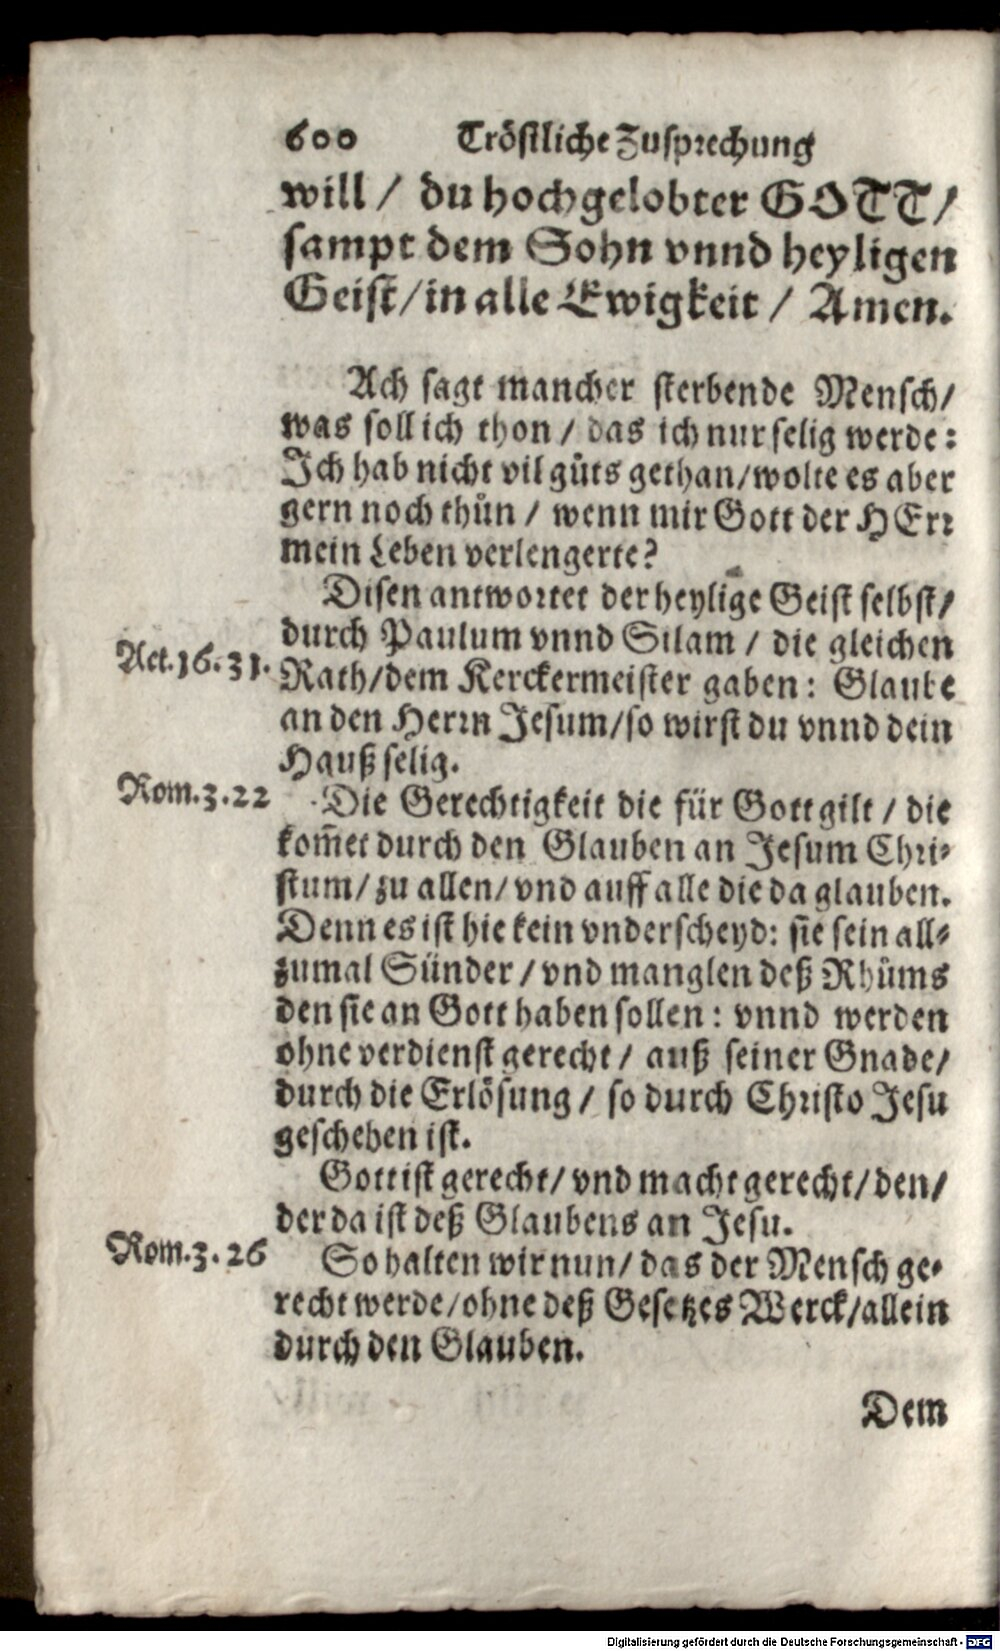 600 Tröstliche Zusprechung
will / du hochgelobter GOTT /
sampt dem Sohn vnnd heyligen
Geist / in alle Ewigkeit / Amen.
Ach sagt mancher sterbende Mensch /
was soll ich thon / das ich nur selig werde:
Ich hab nicht vil gůts gethan / wolte es aber
gern noch thůn / wenn mir Gott der HErr
mein Leben verlengerte?
Disen antwortet der heylige Geist selbst /
durch Paulum vnnd Silam / die gleichen
Act. 16. 31. Rath / dem Kerckermeister gaben: Glaube
an den Herrn Jesum / so wirst du vnnd dein
Hauß selig.
Rom. 3. 22 Die Gerechtigkeit die für Gott gilt / die
kom̃et durch den Glauben an Jesum Chri-
stum / zu allen / vnd auff alle die da glauben.
Denn es ist hie kein vnderscheyd: sie sein all-
zumal Sünder / vnd manglen deß Rhůms
den sie an Gott haben sollen: vnnd werden
ohne verdienst gerecht / auß seiner Gnade /
durch die Erlösung / so durch Christo Jesu
geschehen ist.
Gott ist gerecht / vnd macht gerecht / den /
der da ist deß Glaubens an Jesu.
Rom. 3. 26 So halten wir nun / das der Mensch ge-
recht werde / ohne deß Gesetzes Werck / allein
durch den Glauben.
Dem
Digitalisierung gefördert durch die Deutsche Forschungsgemeinschaft - DFG